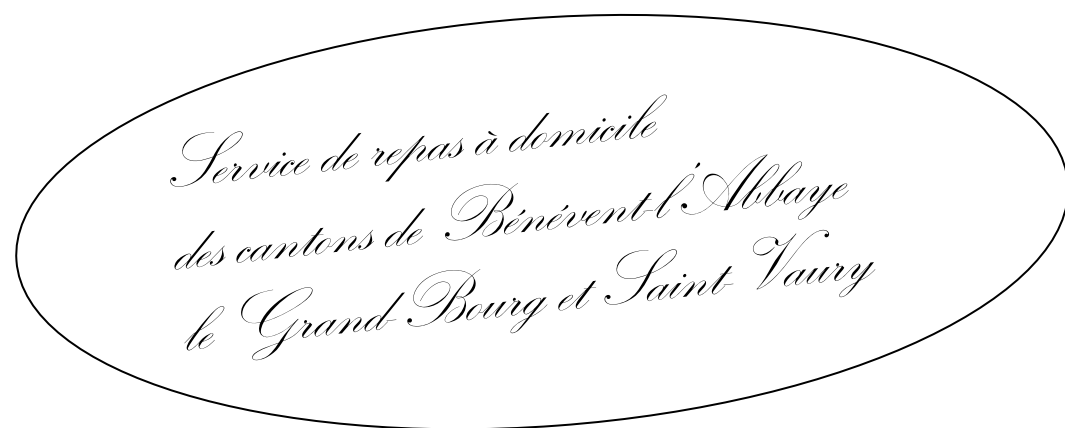 Service de repas à domicile
des cantons de Bénévent-l'Abbaye
le Grand-Bourg et Saint-Vaury